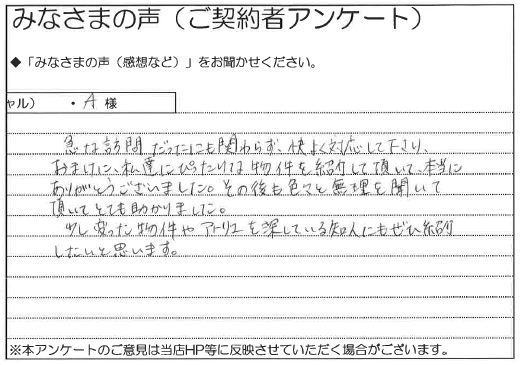 みなさまの声（ご契約者アンケート）
◆「みなさまの声（感想など）」をお聞かせください。
ャル） ・A 様
急な訪問だったにも関わらず、快よく対応して下さり、
おまけに、私達にぴったりな物件を紹介して頂いて、本当に
ありがとうございました。その後も色々と無理を聞いて
頂いてとても助かりました。
少し変った物件やアトリエを探している知人にもぜひ紹介
したいと思います。
※本アンケートのご意見は当店HP等に反映させていただく場合がございます。